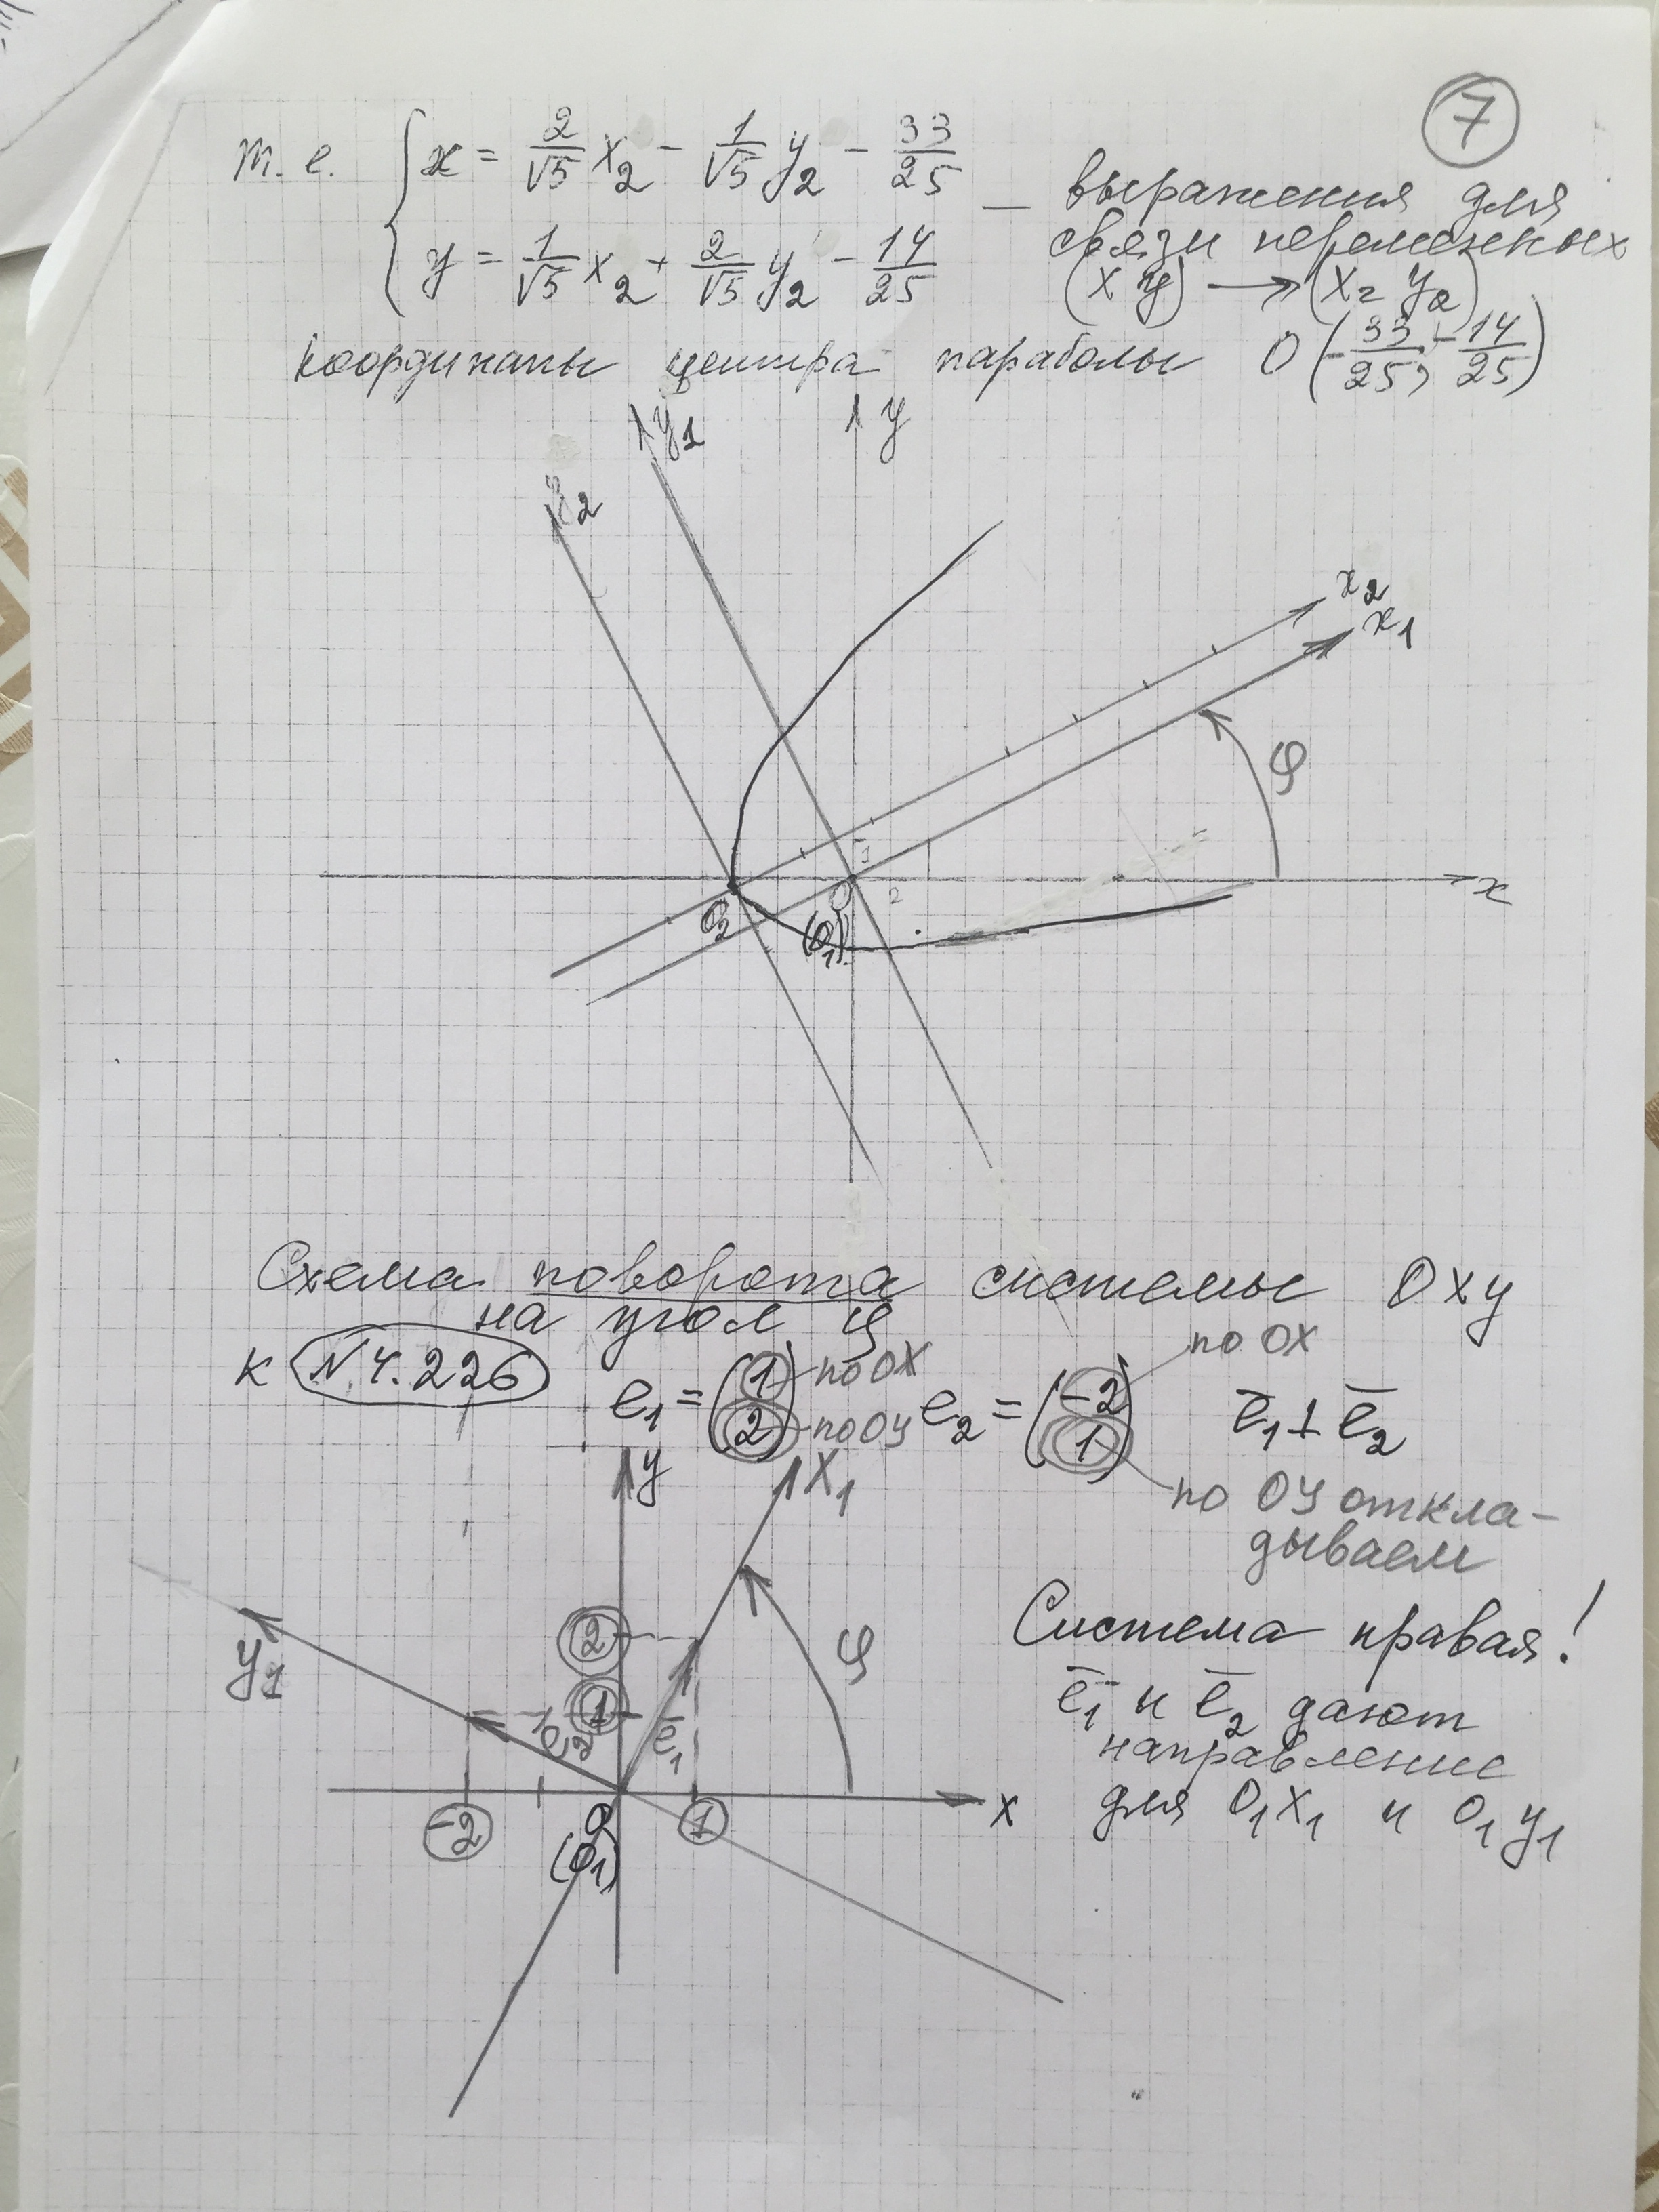 7
т. е. { x = 2/√5 x₂ - 1/√5 y₂ - 33/25
y = 1/√5 x₂ + 2/√5 y₂ - 14/25
— выражения для
связи переменных
(x y) → (x₂ y₂)
координаты центра параболы O(-33/25; -14/25)
y₁ y
y₂
x₂
x₁
φ
1
O 2 x
O₂ (O₁)
Схема поворота системы Oxy
на угол φ
к N 4.226
e₁ = (1 2) по OX по Oy e₂ = (-2 1) по OX e̅₁ ⊥ e̅₂
по Oy откла-
дываем
y X₁
y₁ 2 φ
1
e̅₂ e̅₁
-2 O 1 x
(O₁)
Система правая!
e̅₁ и e̅₂ дают
направление
для O₁x₁ и O₁y₁